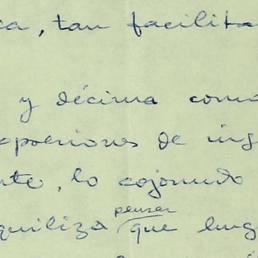 ca, tan facilita
y décima como
oposiciones de ing
nte, lo cojonudo
quiliza pensar que luego